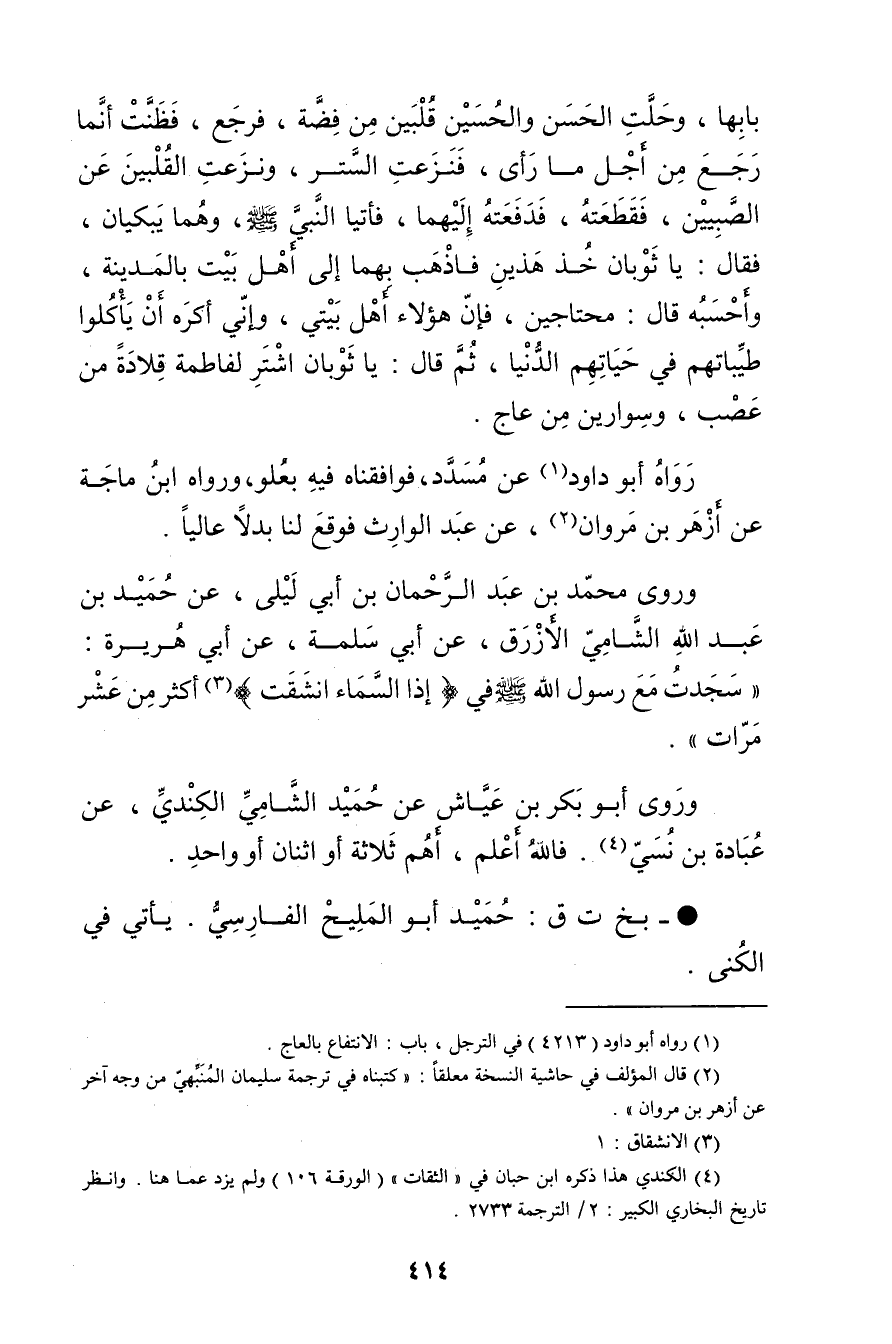 بابِها ، وحَلَّتِ الحَسَن والحُسَيْن قُلْبَين مِن فِضَّة ، فرجَع ، فَظَنَّتْ أنَّما
رَجَعَ مِن أَجْل ما رَأى ، فَنَزَعتِ السَّتر ، ونزَعتِ القُلْبينَ عَن
الصَّبِييْن ، فَقَطَعَتهُ ، فَدَفَعَتهُ إِلَيْهما ، فأتيا النَّبيَّ ﷺ، وهُما يَبكيان ،
فقال : يا ثَوْبان خُذ هَذينِ فاذْهَب بِهما إلى أَهْل بَيْت بالمَدينة ،
وأَحْسَبُه قال : محتاجين ، فإنّ هؤلاء أَهْل بَيْتي ، وإنّي أكرَه أَنْ يَأْكُلوا
طيِّباتهم في حَيَاتِهِم الدُّنْيا ، ثُمَّ قال : يا ثَوْبان اشْتَرِ لفاطمة قِلادَةً من
عَصْب ، وسِوارين مِن عاج .
رَوَاهُ أبو داود(١) عن مُسَدَّد، فوافقناه فيهِ بعُلو، ورواه ابنُ ماجَة
عن أَزْهَر بن مَروان(٢) ، عن عبَد الوارِث فوقعَ لنا بدلاً عالياً .
وروى محمّد بن عبَد الرَّحْمان بن أبي لَيْلى ، عن حُمَيْد بن
عَبد اللهِ الشَّاميّ الأَزْرَق ، عن أبي سَلمة ، عن أبي هُريرة :
« سَجَدتُ مَعَ رسول الله ﷺ في ﴿ إذا السَّمَاء انشَقَت ﴾(٣) أكثر مِن عَشْر
مَرّات » .
ورَوى أبو بَكر بن عَيَّاش عن حُمَيْد الشَّاميِّ الكِنْديِّ ، عن
عُبَادة بن نُسَيّ(٤) . فاللهُ أَعْلم ، أَهُم ثَلاثة أو اثنان أو واحدِ .
● ـ بخ ت ق : حُمَيْد أبو المَلِيحْ الفارِسِيُّ . يأتي في
الكُنى .
(١) رواه أبو داود ( ٤٢١٣ ) في الترجل ، باب : الانتفاع بالعاج .
(٢) قال المؤلف في حاشية النسخة معلقاً : « كتبناه في ترجمة سليمان المُنَبِّهيّ من وجه آخر
عن أزهر بن مروان » .
(٣) الانشقاق : ١
(٤) الكندي هذا ذكره ابن حبان في « الثقات » ( الورقة ١٠٦ ) ولم يزد عما هنا . وانظر
تاريخ البخاري الكبير : ٢/ الترجمة ٢٧٣٣ .
٤١٤